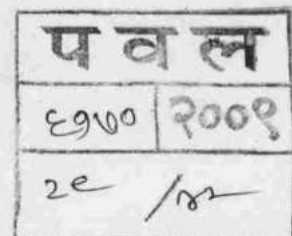 प व ल
६१७० २००९
२९ /४२